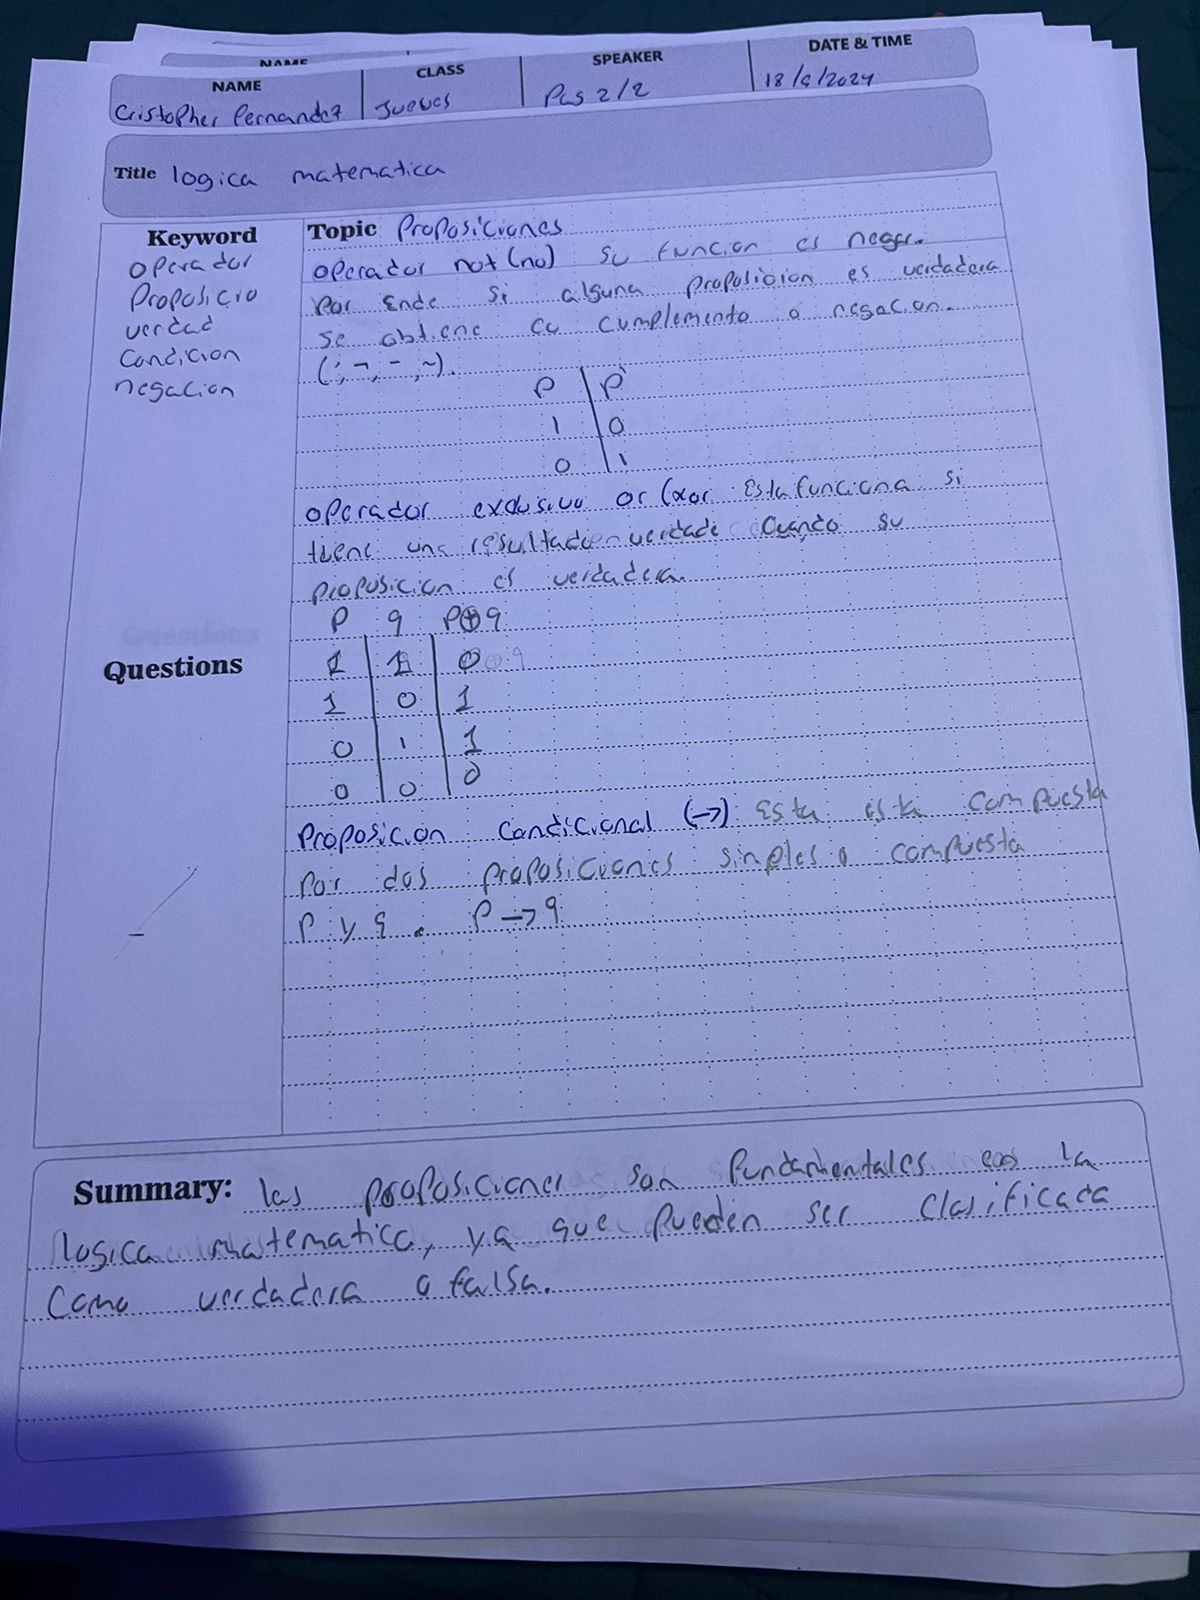 NAME
NAME CLASS SPEAKER DATE & TIME
Cristopher Fernandez Jueves Pas 2/2 18/9/2024
Title logica matematica
Keyword
operador
Proposicio
verdad
Condicion
negacion
Topic Proposiciones
operador not (no) : su funcion es negar.
Por Ende si alguna proposicion es verdadera
se obtiene cu cumplemento o negacion.
(', ¬, -, ~).
P P'
1 0
0 1
operador exclusivo or (xor Esta funciona si
tiene una resultado verdade Cuando su
proposicion es verdadera.
P q P⊕q
1 1 0
1 0 1
0 1 1
0 0 0
Proposicion Condicional (→) Esta esta compuesta
Por dos proposiciones simples o compuesta
P y q. P → q
Questions
Summary: las proposiciones son fundamentales en la
logica matematica, ya que pueden ser clasificada
Como verdadera o falsa.